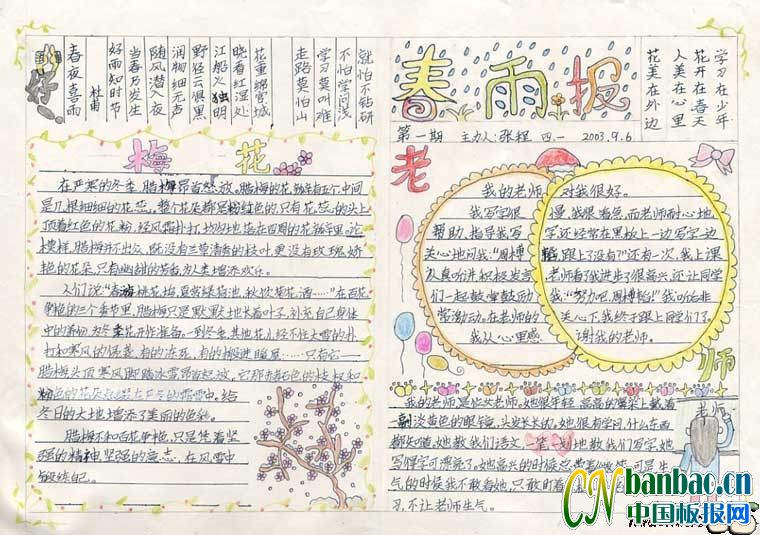 好
春夜喜雨
杜甫
好雨知时节
当春乃发生
随风潜入夜
润物细无声
野径云俱黑
江船火独明
晓看红湿处
花重锦官城
走路莫怕山
学习莫叫难
不怕学问浅
就怕不钻研
春雨报
花美在外边
人美在心里
花开在春天
学习在少年
第一期 主办人:张程 四一 2003.9.6
梅花
在严寒的冬季,腊梅昂首怒放。腊梅的花有五个中间
是几根细细的花蕊,整个花朵都是粉红色的,只有花蕊的头上
顶着红色的花粉,经风霜扑打,均匀地落在四周的花瓣里。论
模样,腊梅并不出众,既没有兰草清秀的枝叶,更没有玫瑰娇
艳的花朵,只有幽甜的芳香,为人类增添欢乐。
人们说“春桃花梅,夏赏绿荷池,秋饮菊花酒……”在百花
争艳的三个季节里,腊梅只是默默地长着叶子,补充自己身体
中的养份,为冬季花开作准备。一到冬季,其他花儿经不住大雪的扑
打和寒风的侵袭,有的冻死,有的搬进暖房……只有它—
腊梅头顶寒风脚踏冰雪昂首怒放。它那赤色的枝杈和
色的花朵
冬日的大地增添了美丽的色彩。
腊梅不和百花争艳,只是凭着坚
强的精神,坚强的意志,在风雪中
锻练自己。
老师
我的老师 对我很好。
我写字很 慢,我很着急,而老师耐心地
帮助,指导我写 字还经常在黑板上一边写字一边
关心地问我:“周博韬,跟上了没有?”还有一次,我上课
认真听讲积极发言 老师看了我进步了很高兴,还让同学
们一起鼓掌鼓励 我:“努力吧,周博韬!”我听后非
常激动,在老师的 关心下,我终于跟上同学们了。
我从心里感 谢我的老师。
我的老师,是位女老师。她很年轻,高高的鼻梁上戴着一
副淡黄色的眼镜,头发长长的,她很有学问,什么东西
都知道,她教我们语文,一笔一划地教我们写字,她
写的字可漂亮了。她高兴的时候只带着微笑,可是生
气的时候我不敢看她,只敢盯着
习,不让老师生气。
老师
CN banbao.cn
中国板报网